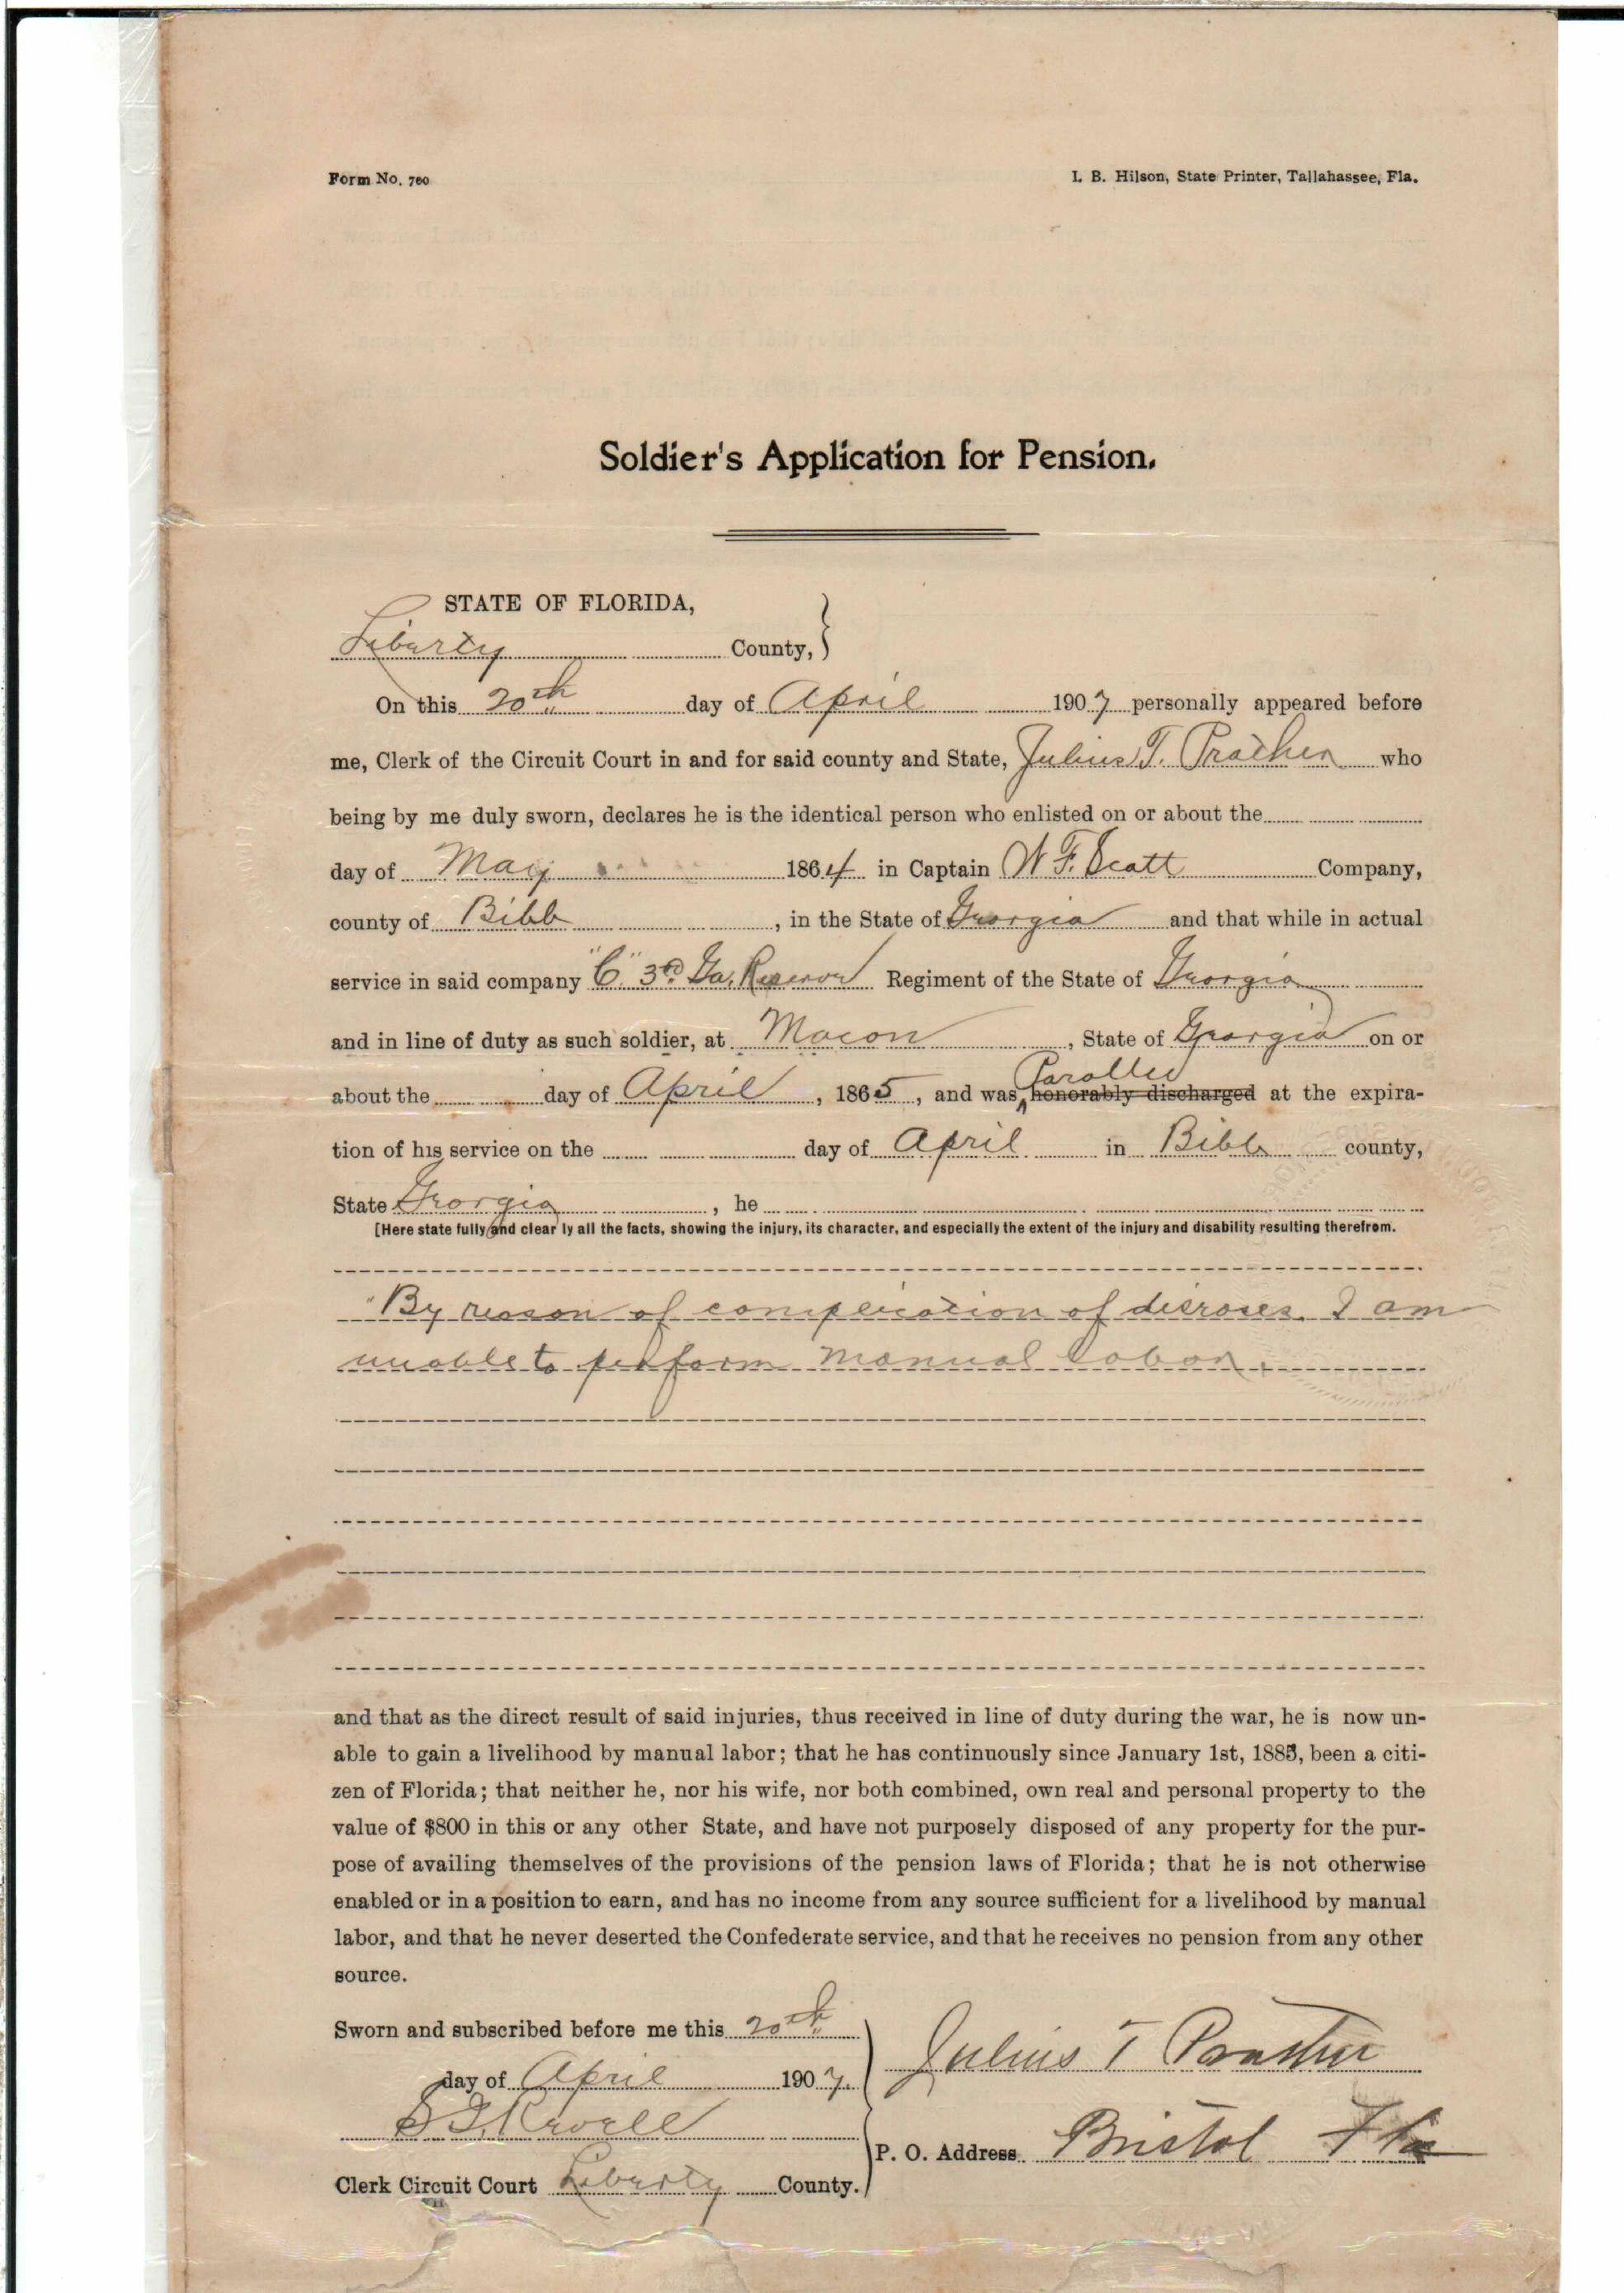 Form No. 760
I. B. Hilson, State Printer, Tallahassee, Fla.
Soldier's Application for Pension.
STATE OF FLORIDA,
Liberty County,
On this 20th day of April 1907 personally appeared before
me, Clerk of the Circuit Court in and for said county and State, Julius T. Prather who
being by me duly sworn, declares he is the identical person who enlisted on or about the
day of May 1864 in Captain W F. Scott Company,
county of Bibb, in the State of Georgia and that while in actual
service in said company "C" 3rd Ga. Reserve Regiment of the State of Georgia
and in line of duty as such soldier, at Macon, State of Georgia on or
Parolled
about the day of April, 1865, and was honorably discharged at the expira-
tion of his service on the day of April in Bibb county,
State Georgia, he
[Here state fully and clear ly all the facts, showing the injury, its character, and especially the extent of the injury and disability resulting therefrom.
"By reason of complication of diseases. I am
unable to perform manual labor.
and that as the direct result of said injuries, thus received in line of duty during the war, he is now un-
able to gain a livelihood by manual labor; that he has continuously since January 1st, 1885, been a citi-
zen of Florida; that neither he, nor his wife, nor both combined, own real and personal property to the
value of $800 in this or any other State, and have not purposely disposed of any property for the pur-
pose of availing themselves of the provisions of the pension laws of Florida; that he is not otherwise
enabled or in a position to earn, and has no income from any source sufficient for a livelihood by manual
labor, and that he never deserted the Confederate service, and that he receives no pension from any other
source.
Sworn and subscribed before me this 20th
day of April 1907.
Julius T Prather
Revell
P. O. Address Bristol Fla
Clerk Circuit Court Liberty County.